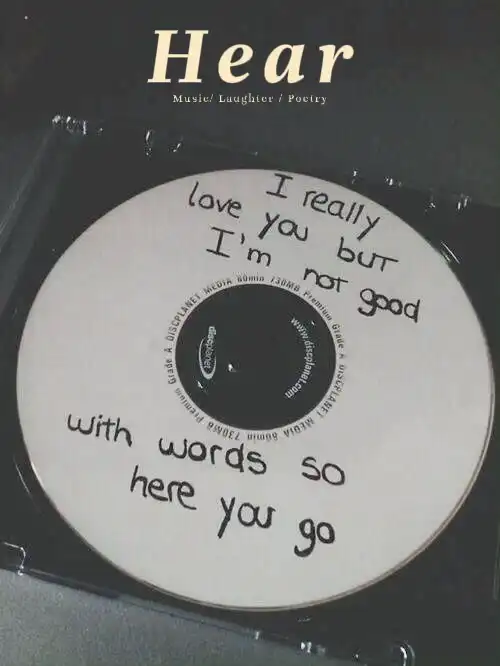 Hear
Music/ Laughter / Poetry
I really
love you but
I'm not good
DISCPLANET MEDIA 80min 730MB Premium Grade A DISCPLANET MEDIA 80min 730MB Premium Grade A
discplanet
www.discplanet.com
with words so
here you go